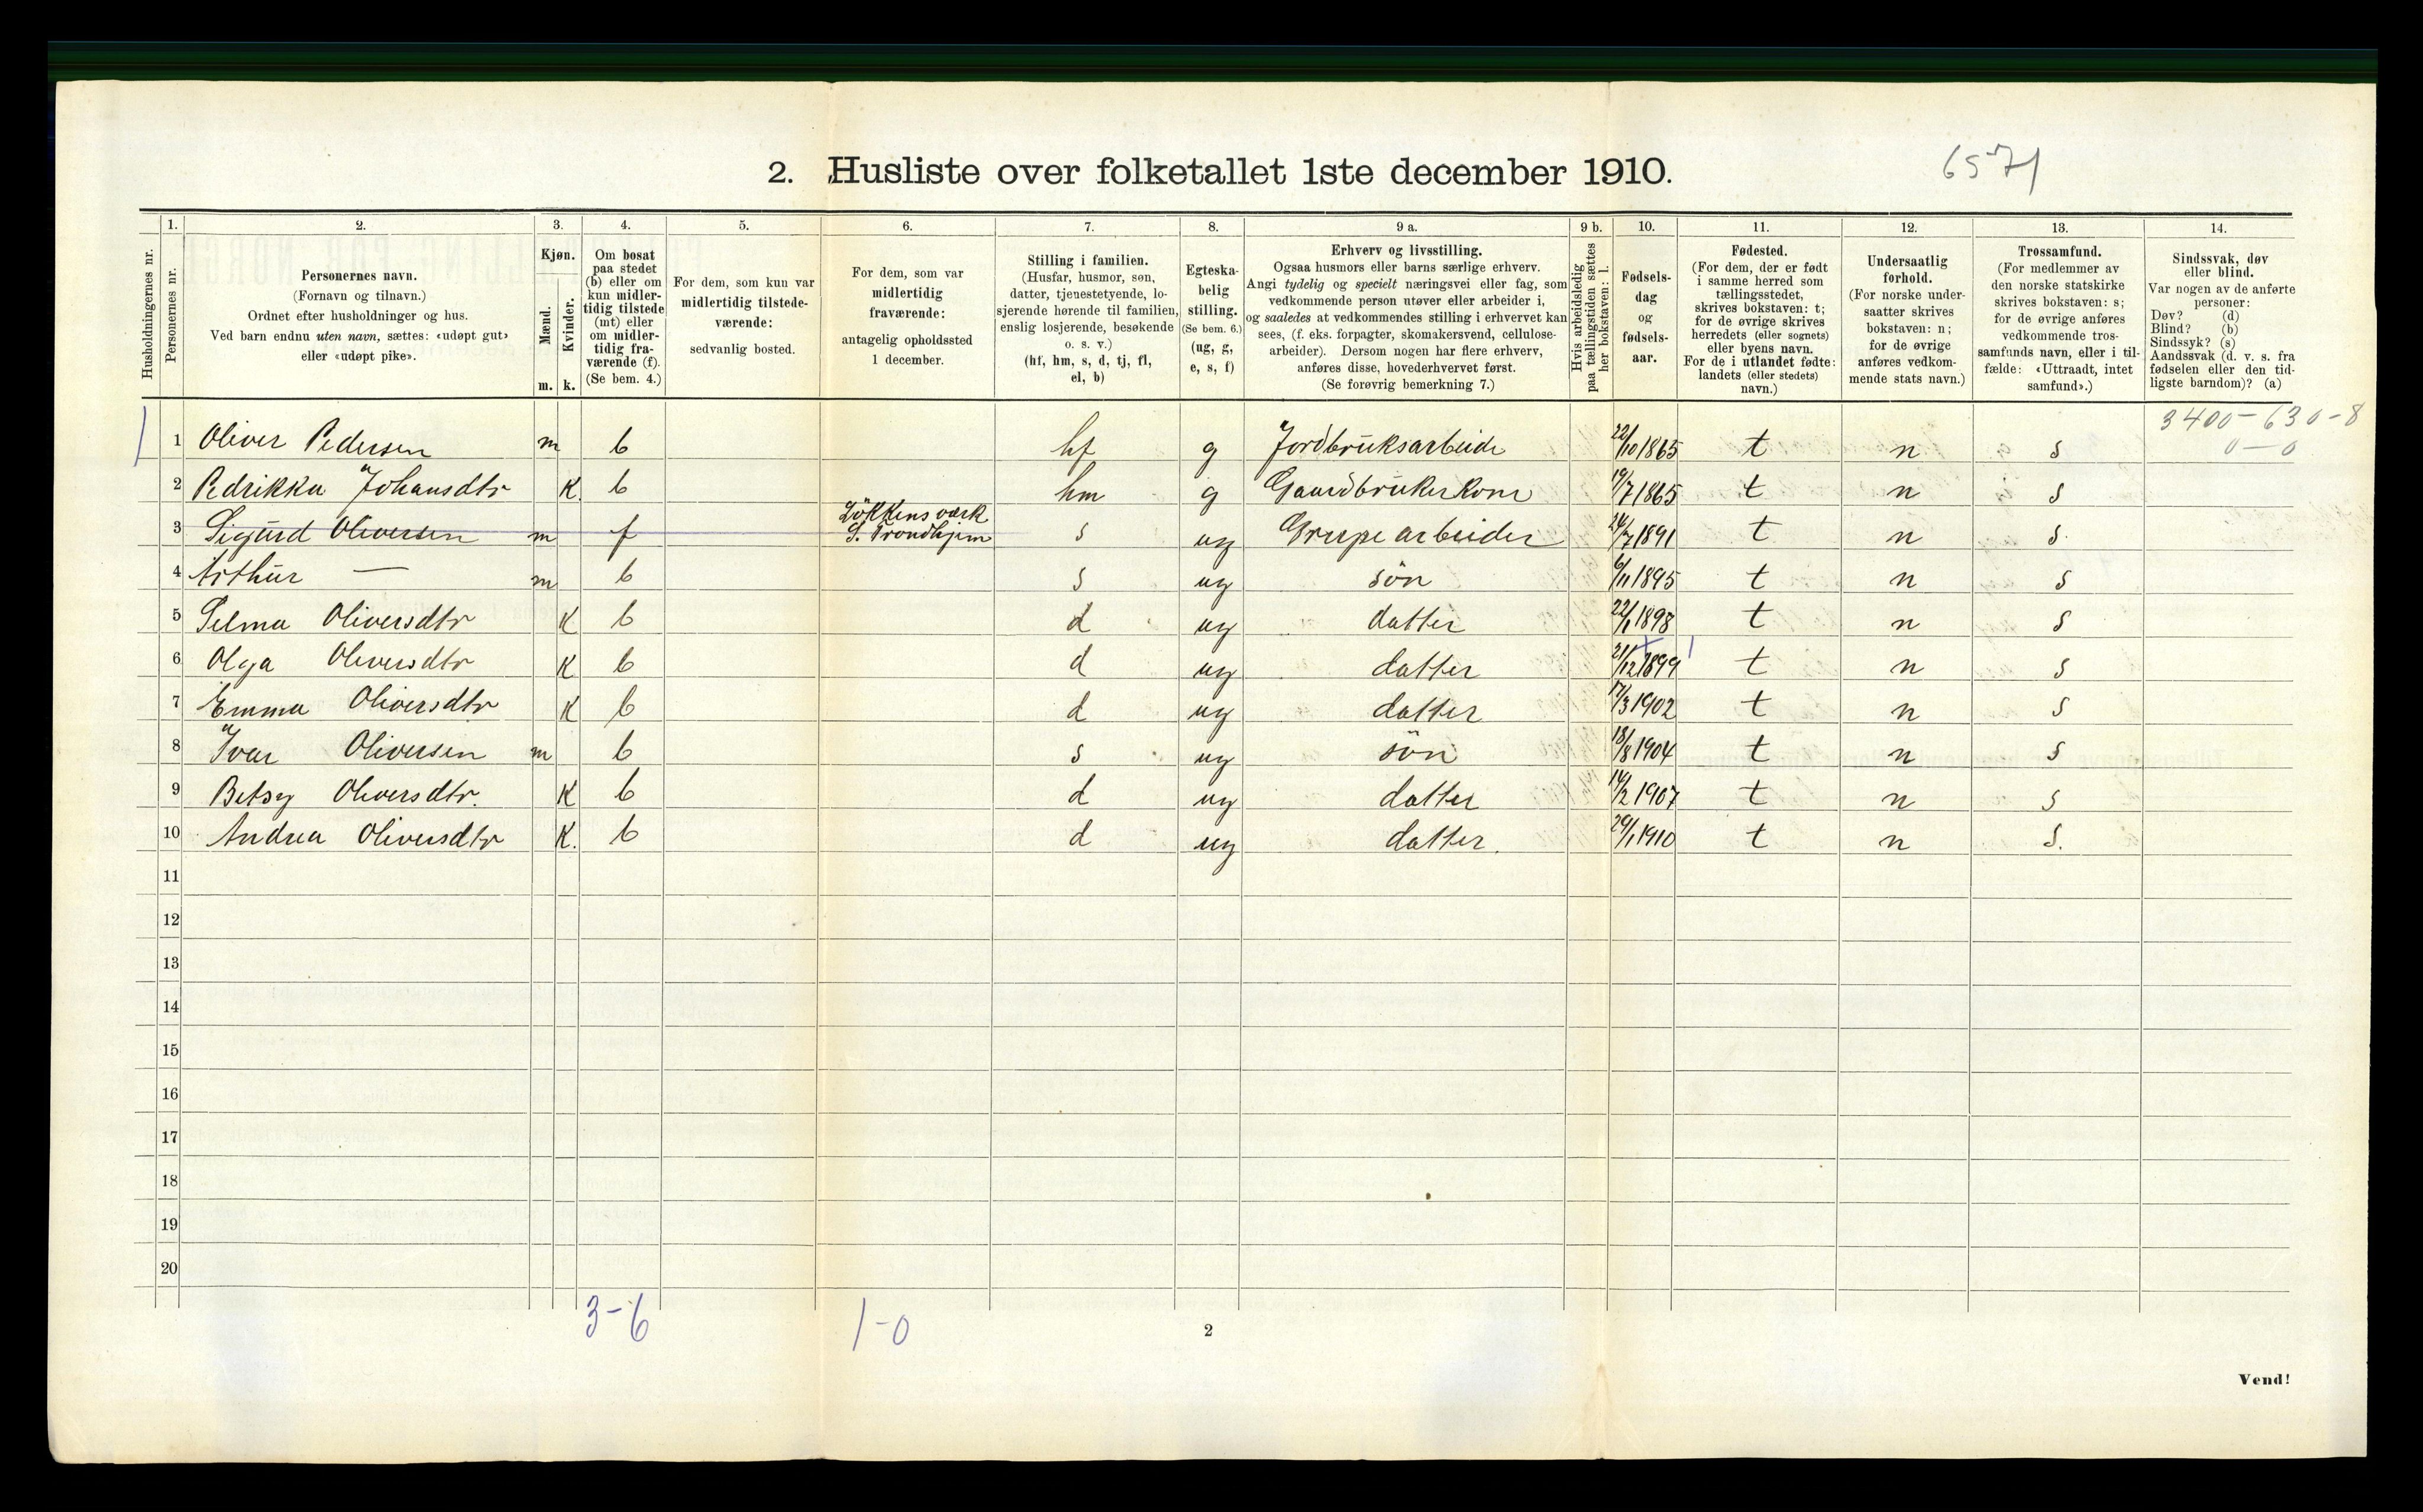 2. Husliste over folketallet 1ste december 1910.
6571
1. 2. 3. 4. 5. 6. 7. 8. 9 a. 9 b. 10. 11. 12. 13. 14.
Husholdningernes nr.
Personernes nr.
Personernes navn.
(Fornavn og tilnavn.)
Ordnet efter husholdninger og hus.
Ved barn endnu uten navn, sættes: «udøpt gut»
eller «udøpt pike».
Kjøn.
Mænd.
Kvinder.
m. k.
Om bosat
paa stedet
(b) eller om
kun midler-
tidig tilstede
(mt) eller
om midler-
tidig fra-
værende (f).
(Se bem. 4.)
For dem, som kun var
midlertidig tilstede-
værende:
sedvanlig bosted.
For dem, som var
midlertidig
fraværende:
antagelig opholdssted
1 december.
Stilling i familien.
(Husfar, husmor, søn,
datter, tjenestetyende, lo-
sjerende hørende til familien,
enslig losjerende, besøkende
o. s. v.)
(hf, hm, s, d, tj, fl,
el, b)
Egteska-
belig
stilling.
(Se bem. 6.)
(ug, g,
e, s, f)
Erhverv og livsstilling.
Ogsaa husmors eller barns særlige erhverv.
Angi tydelig og specielt næringsvei eller fag, som
vedkommende person utøver eller arbeider i,
og saaledes at vedkommendes stilling i erhvervet kan
sees, (f. eks. forpagter, skomakersvend, cellulose-
arbeider). Dersom nogen har flere erhverv,
anføres disse, hovederhvervet først.
(Se forøvrig bemerkning 7.)
Hvis arbeidsledig
paa tællingstiden sættes
her bokstaven: l.
Fødsels-
dag
og
fødsels-
aar.
Fødested.
(For dem, der er født
i samme herred som
tællingsstedet,
skrives bokstaven: t;
for de øvrige skrives
herredets (eller sognets)
eller byens navn.
For de i utlandet fødte:
landets (eller stedets)
navn.)
Undersaatlig
forhold.
(For norske under-
saatter skrives
bokstaven: n;
for de øvrige
anføres vedkom-
mende stats navn.)
Trossamfund.
(For medlemmer av
den norske statskirke
skrives bokstaven: s;
for de øvrige anføres
vedkommende tros-
samfunds navn, eller i til-
fælde: «Uttraadt, intet
samfund».)
Sindssvak, døv
eller blind.
Var nogen av de anførte
personer:
Døv? (d)
Blind? (b)
Sindssyk? (s)
Aandssvak (d. v. s. fra
fødselen eller den tid-
ligste barndom)? (a)
3400-630-8
0-0
1 1 Oliver Pedersen m b hf g Jordbruksarbeide 22/10 1865 t n s
2 Pedrikka Johansdtr K b hm g Gaardbruker kone 19/7 1865 t n s
3 Sigurd Oliversen m f Løkkens værk S. Trondhjem s ug Grupearbeider 24/7 1891 t n s
4 Arthur — m b s ug søn 6/11 1895 t n s
5 Selma Oliversdtr K b d ug datter 22/1 1898 t n s
6 Olga Oliversdtr K b d ug datter 21/12 1899 t n s
7 Emma Oliversdtr K b d ug datter 17/3 1902 t n s
8 Ivar Oliversen m b s ug søn 18/8 1904 t n s
9 Betsy Oliversdtr. K b d ug datter 14/2 1907 t n s
10 Andrea Oliversdtr K. b d ug datter. 29/1 1910 t n s.
11
12
13
14
15
16
17
18
19
20
3-6 1-0
2
Vend!